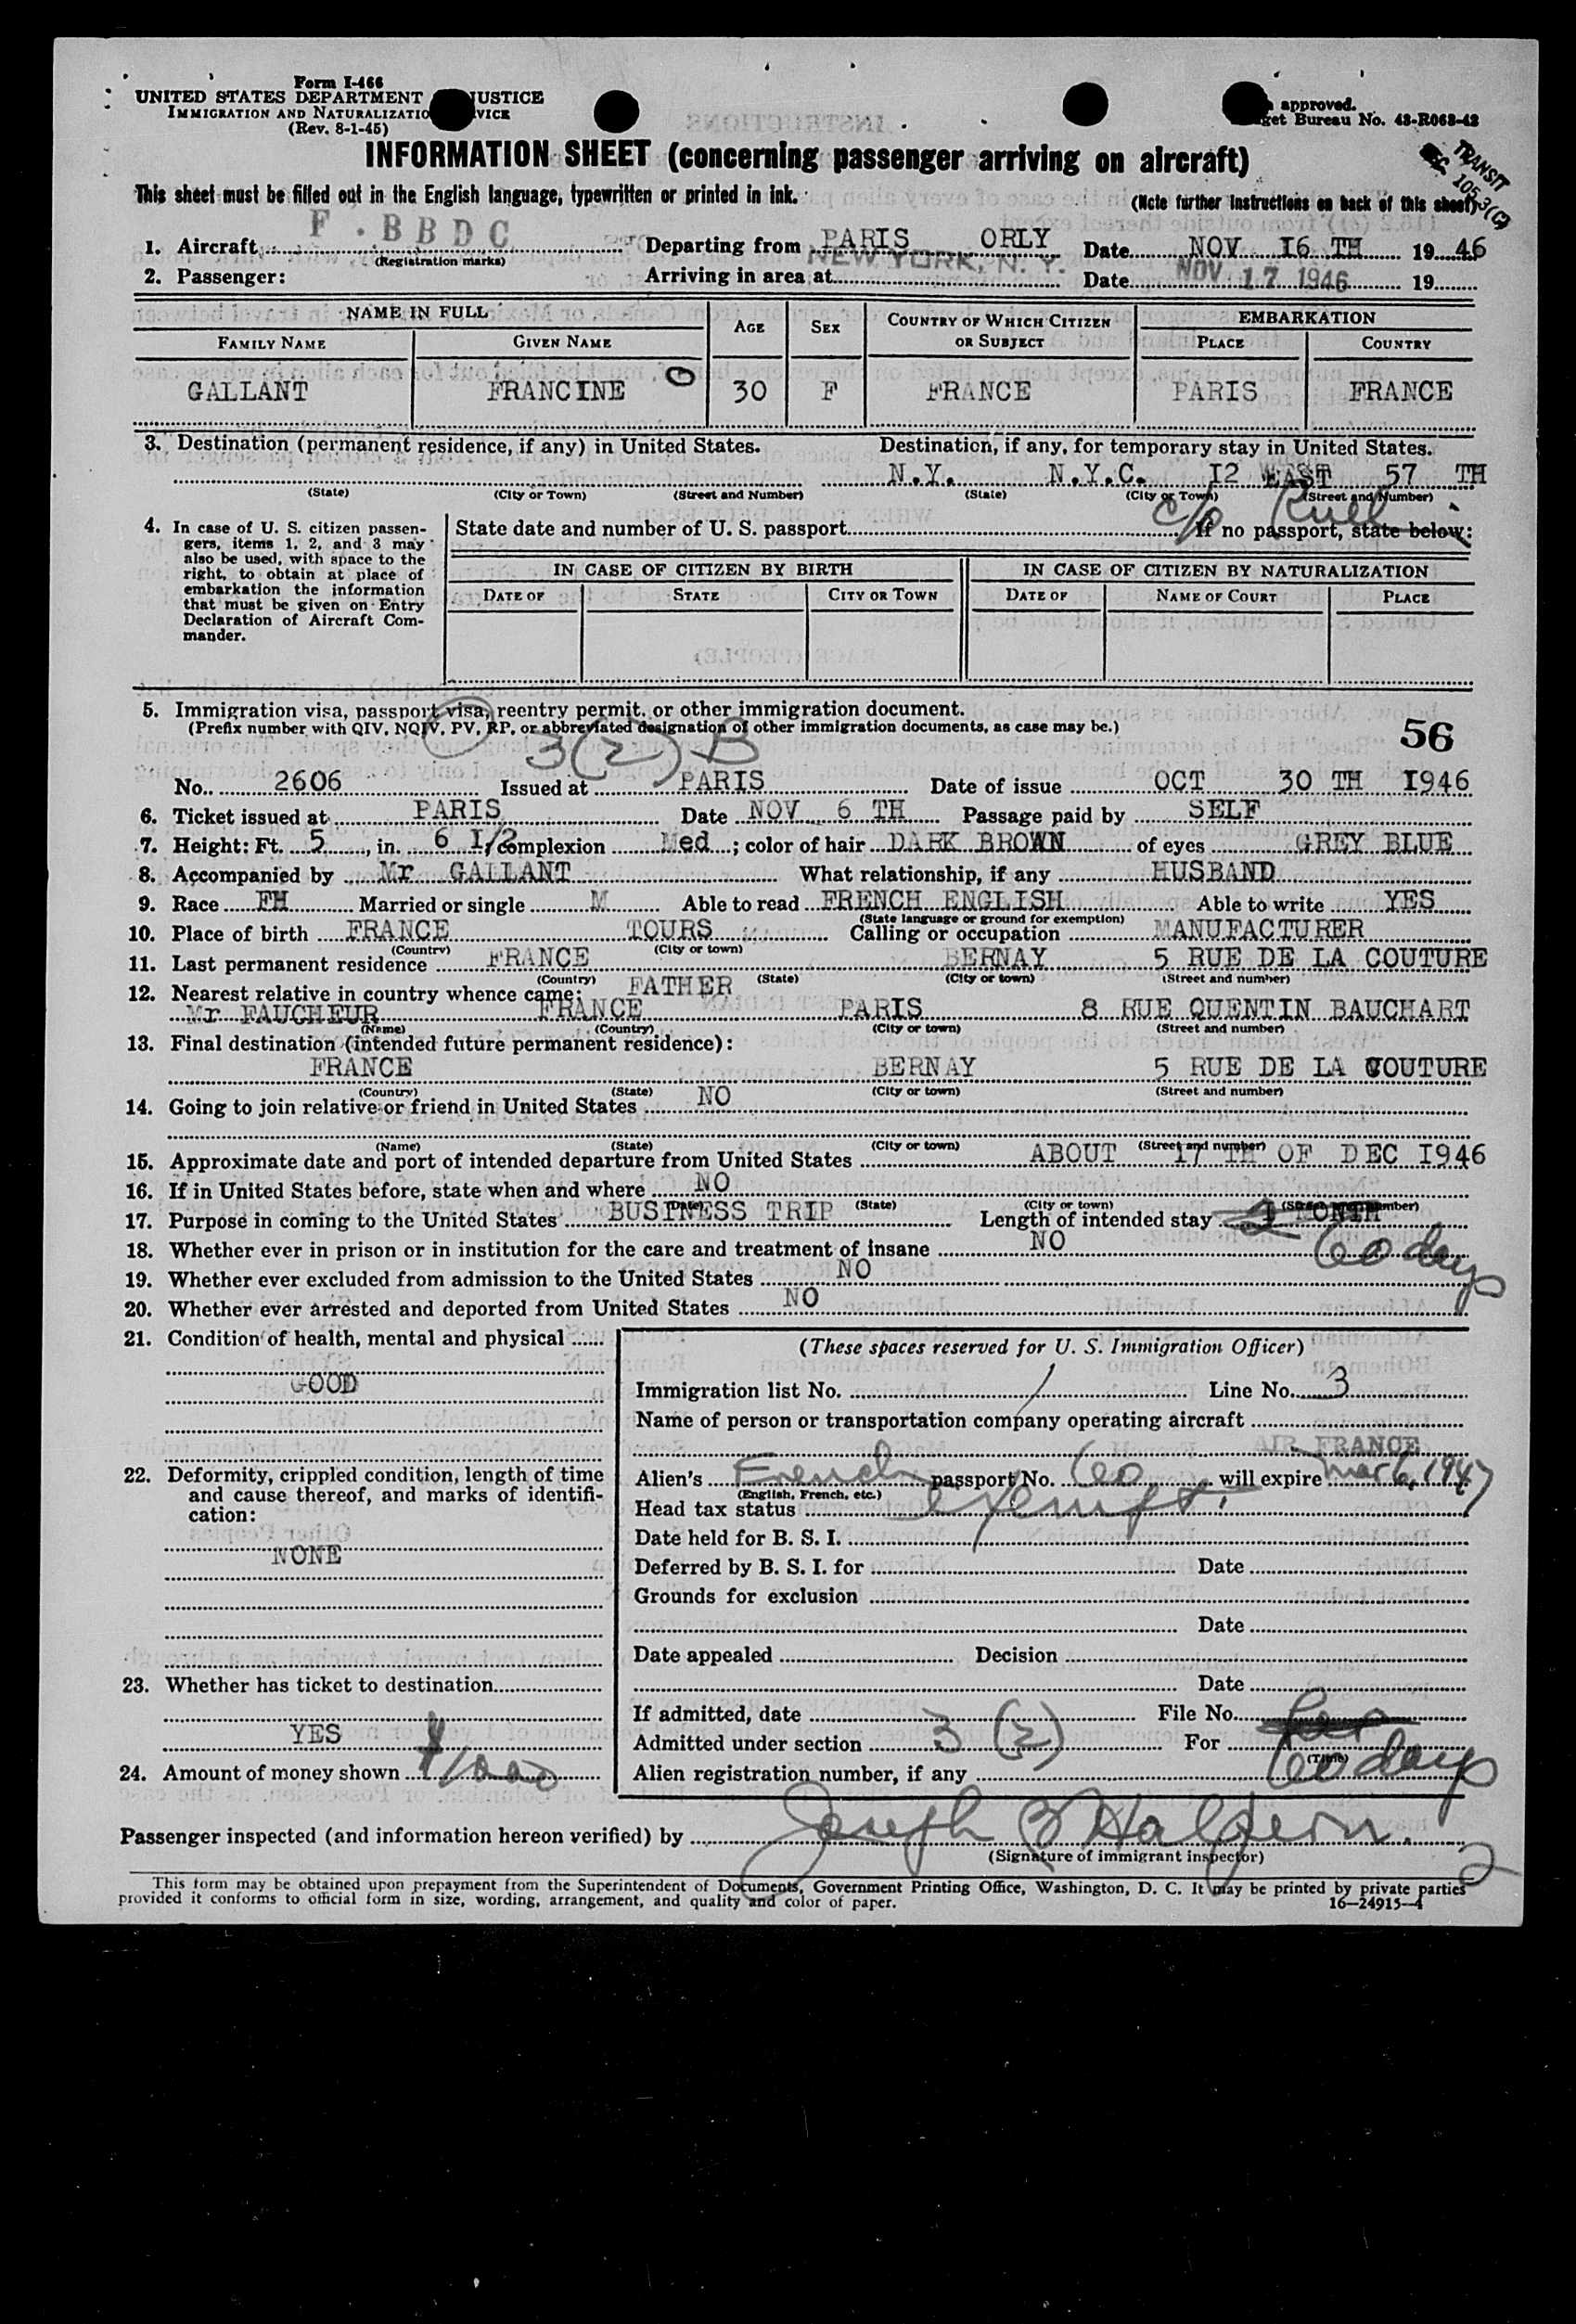 Form I-466
UNITED STATES DEPARTMENT JUSTICE
IMMIGRATION AND NATURALIZATIO VICE
(Rev. 8-1-45)
approved.
get Bureau No. 43-R063-42
INFORMATION SHEET (concerning passenger arriving on aircraft)
TRANSIT
SEC 105 3(C)
This sheet must be filled out in the English language, typewritten or printed in ink.
(Note further instructions on back of this sheet)
1. Aircraft F . BBDC Departing from PARIS ORLY Date NOV I6 TH 19 46
(Registration marks)
2. Passenger: Arriving in area at NEW YORK, N. Y. Date NOV 17 1946 19
NAME IN FULL AGE SEX COUNTRY OF WHICH CITIZEN OR SUBJECT EMBARKATION
FAMILY NAME GIVEN NAME PLACE COUNTRY
GALLANT FRANCINE 30 F FRANCE PARIS FRANCE
3. Destination (permanent residence, if any) in United States. Destination, if any, for temporary stay in United States.
N.Y. N.Y.C. I2 EAST 57 TH
(State) (City or Town) (Street and Number) (State) (City or Town) (Street and Number)
c/o
4. In case of U. S. citizen passen-
gers, items 1, 2, and 3 may
also be used, with space to the
right, to obtain at place of
embarkation the information
that must be given on Entry
Declaration of Aircraft Com-
mander.
State date and number of U. S. passport If no passport, state below:
IN CASE OF CITIZEN BY BIRTH IN CASE OF CITIZEN BY NATURALIZATION
DATE OF STATE CITY OR TOWN DATE OF NAME OF COURT PLACE
5. Immigration visa, passport visa, reentry permit, or other immigration document.
(Prefix number with QIV, NQIV, PV, RP, or abbreviated designation of other immigration documents, as case may be.)
56
3(2) B
No. 2606 Issued at PARIS Date of issue OCT 30 TH I946
6. Ticket issued at PARIS Date NOV 6 TH Passage paid by SELF
7. Height: Ft. 5, in. 6 I/2 Complexion Med; color of hair DARK BROWN of eyes GREY BLUE
8. Accompanied by Mr GALLANT What relationship, if any HUSBAND
9. Race FH Married or single M Able to read FRENCH ENGLISH Able to write YES
(State language or ground for exemption)
10. Place of birth FRANCE TOURS Calling or occupation MANUFACTURER
(Country) (City or town)
11. Last permanent residence FRANCE BERNAY 5 RUE DE LA COUTURE
(Country) (State) (City or town) (Street and number)
12. Nearest relative in country whence came: FATHER
Mr FAUCHEUR FRANCE PARIS 8 RUE QUENTIN BAUCHART
(Name) (Country) (City or town) (Street and number)
13. Final destination (intended future permanent residence):
FRANCE BERNAY 5 RUE DE LA COUTURE
(Country) (State) (City or town) (Street and number)
14. Going to join relative or friend in United States NO
(Name) (State) (City or town) (Street and number)
15. Approximate date and port of intended departure from United States ABOUT 17 TH OF DEC I946
16. If in United States before, state when and where NO
(Date) (State) (City or town) (Street and number)
17. Purpose in coming to the United States BUSINESS TRIP Length of intended stay I MONTH
60 days
18. Whether ever in prison or in institution for the care and treatment of insane NO
19. Whether ever excluded from admission to the United States NO
20. Whether ever arrested and deported from United States NO
21. Condition of health, mental and physical
GOOD
22. Deformity, crippled condition, length of time
and cause thereof, and marks of identifi-
cation:
NONE
23. Whether has ticket to destination
YES
24. Amount of money shown $1000
(These spaces reserved for U. S. Immigration Officer)
Immigration list No. 1 Line No. 3
Name of person or transportation company operating aircraft
AIR FRANCE
Alien's French passport No. 60 will expire Mar 6, 1947
(English, French, etc.)
Head tax status exempt
Date held for B. S. I.
Deferred by B. S. I. for Date
Grounds for exclusion
Date
Date appealed Decision
Date
If admitted, date File No.
Admitted under section 3 (2) For 60 days
(Time)
Alien registration number, if any
Passenger inspected (and information hereon verified) by Joseph B Halpern
(Signature of immigrant inspector)
2
This form may be obtained upon prepayment from the Superintendent of Documents, Government Printing Office, Washington, D. C. It may be printed by private parties
provided it conforms to official form in size, wording, arrangement, and quality and color of paper.
16—24915-4